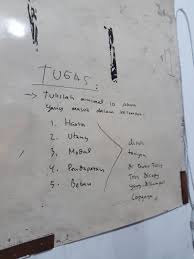 TUGAS:
→ Tuliskan minimal 10 akun
yang masuk dalam kelompok:
1. Harta
2. Utang
3. Modal
4. Pendapatan
5. Beban
ditulis
tangan
yang dikumpul